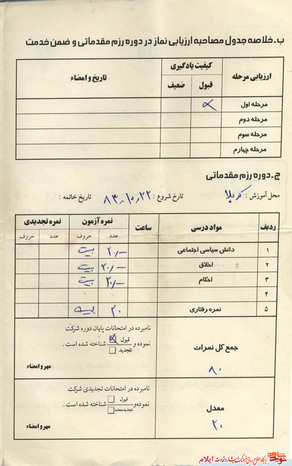 ب. خلاصه جدول مصاحبه ارزیابی نماز در دوره رزم مقدماتی و ضمن خدمت
ارزیابی مرحله کیفیت یادگیری تاریخ و امضاء
قبول ضعیف
مرحله اول
مرحله دوم
مرحله سوم
مرحله چهارم
ج. دوره رزم مقدماتی
محل آموزش: کربلا تاریخ شروع: ۸۳،۱۰،۲۲ تاریخ خاتمه:
ردیف مواد درسی ساعت نمره آزمون نمره تجدیدی
عدد حروف عدد حروف
۱ دانش سیاسی اجتماعی ۲۰/۰۰ بیست
۲ اخلاق ۲۰/۰۰ بیست
۳ احکام ۲۰/۰۰ بیست
۴
۵ نمره رفتاری ۲۰ بیست
جمع کل نمرات
۸۰
نامبرده در امتحانات پایان دوره شرکت
نموده و قبول شناخته شده است.
تجدید
مهر و امضاء
معدل
۲۰
نامبرده در امتحانات تجدیدی شرکت
نموده و قبول شناخته شده است.
مهر و امضاء
ایلام